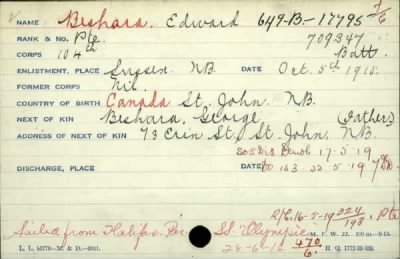 NAME Beshara, Edward 649-B-17795
RANK & NO. Pte. 709347
CORPS 104th Batt.
ENLISTMENT, PLACE Sussex NB. DATE Oct. 5th 1915.
FORMER CORPS Nil.
COUNTRY OF BIRTH Canada St. John NB.
NEXT OF KIN Beshara, George (Father)
ADDRESS OF NEXT OF KIN 73 Erin St, St. John NB.
SOS Demob 17.5.19
DISCHARGE, PLACE DATE
16-5-19 Pte
Sailed from Halifax Per SS. "Olympic" M. F. W. 22.
28-6-16 470/6.
H. Q. 1772-39-839.